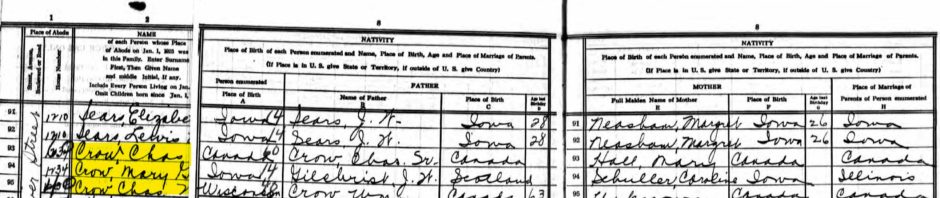 1
2
8
8
Place of Abode
NAME
NATIVITY
NATIVITY
Street, Avenue,
House Number
of each Person whose Place
of Abode on Jan. 1, 1925 was
in this Family. Enter Surname
First, Then Given Name
and middle Initial, if any.
Include Every Person Living on Jan.
Omit Children born since Jan. 1,
Place of Birth of each Person enumerated and Name, Place of Birth, Age and Place of Marriage of Parents.
(If Place is in U. S. give State or Territory, if outside of U. S. give Country)
Person enumerated
Place of Birth
A
FATHER
Name of Father
B
Place of Birth
C
Age last Birthday
D
Place of Birth of each Person enumerated and Name, Place of Birth, Age and Place of Marriage of Parents.
(If Place is in U. S. give State or Territory, if outside of U. S. give Country)
MOTHER
Full Maiden Name of Mother
E
Place of Birth
F
Age last Birthday
G
Place of Marriage of
Parents of Person enumerated
H
Street
91 1210 Sears, Elizabe Iowa 14 Sears, J. W. Iowa 28 91 Neashaw, Margret Iowa 26 Iowa
92 1210 Sears, Lewis Iowa 14 Sears J. W. Iowa 28 92 Neashaw, Margret Iowa 26 Iowa
93 1234 Crow Chas Canada 60 Crow, Chas. Sr. Canada 93 Hall, Mary Canada Canada
94 1234 Crow, Mary G Iowa 14 Gilchrist J. W. Scotland 94 Schuller, Caroline Iowa Illinois
95 Crow Chas Wisconsin Crow Wm. Canada 63 95 Canada Canada